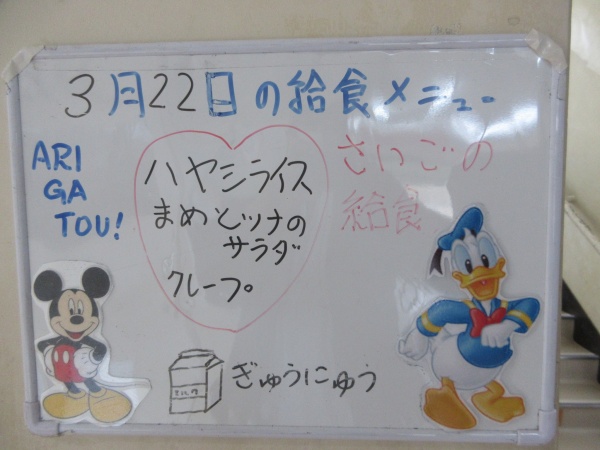 3月22日の給食メニュー
ARI
GA
TOU!
ハヤシライス
まめとツナの
サラダ
クレープ
さいごの
給食
ミルク
ぎゅうにゅう